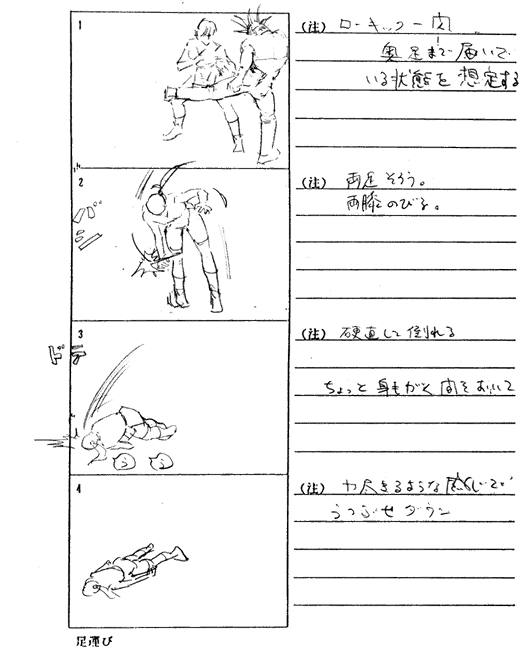 1
(注) ローキック一閃
奥足まで届いて
いる状態を想定する
2
バシ
(注) 両足そろう。
両膝のびる。
3
ドテ
(注) 硬直して倒れる
ちょっと身もがく間をおいて
4
(注) 力尽きるような感じで
うつぶせダウン
足運び